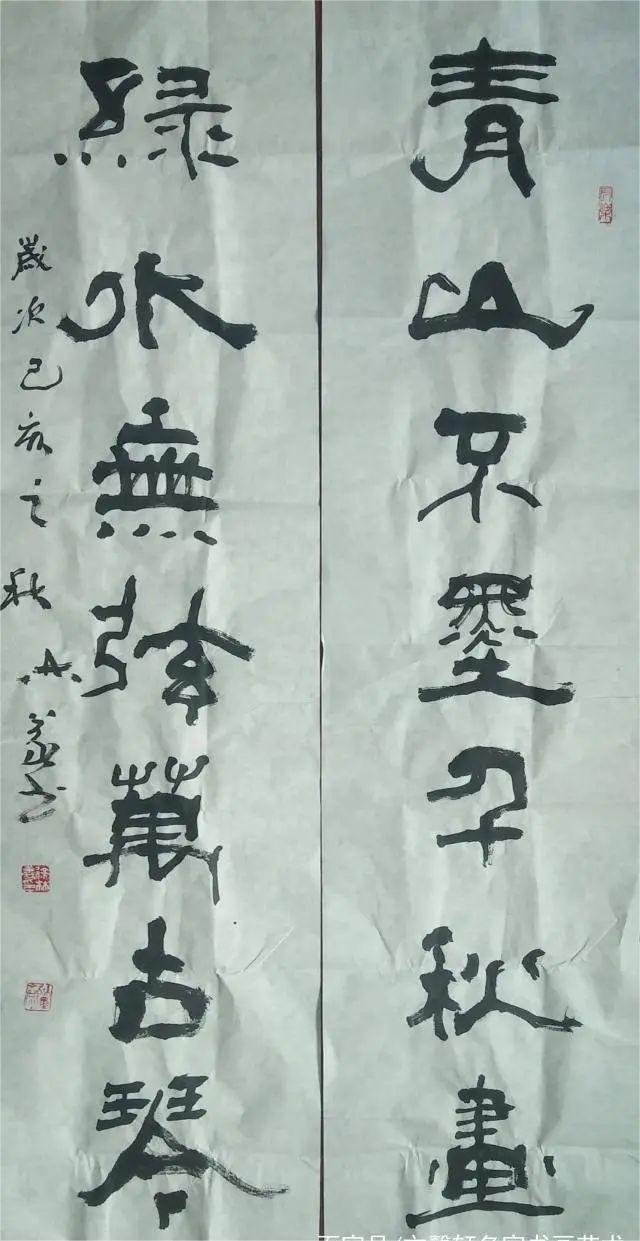 青山不墨千秋畫
綠水無弦萬古琴
歲次己亥之秋